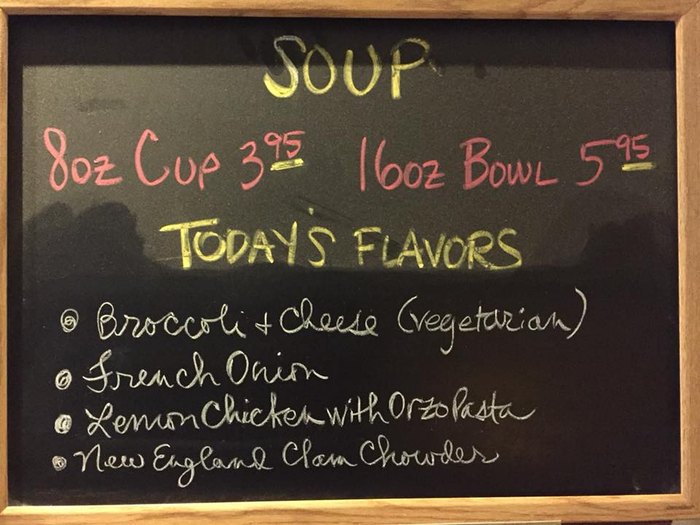 SOUP
8oz Cup 3 95 16oz Bowl 5 95
TODAY'S FLAVORS
Broccoli + Cheese (vegetarian)
French Onion
Lemon Chicken with Orzo Pasta
New England Clam Chowder